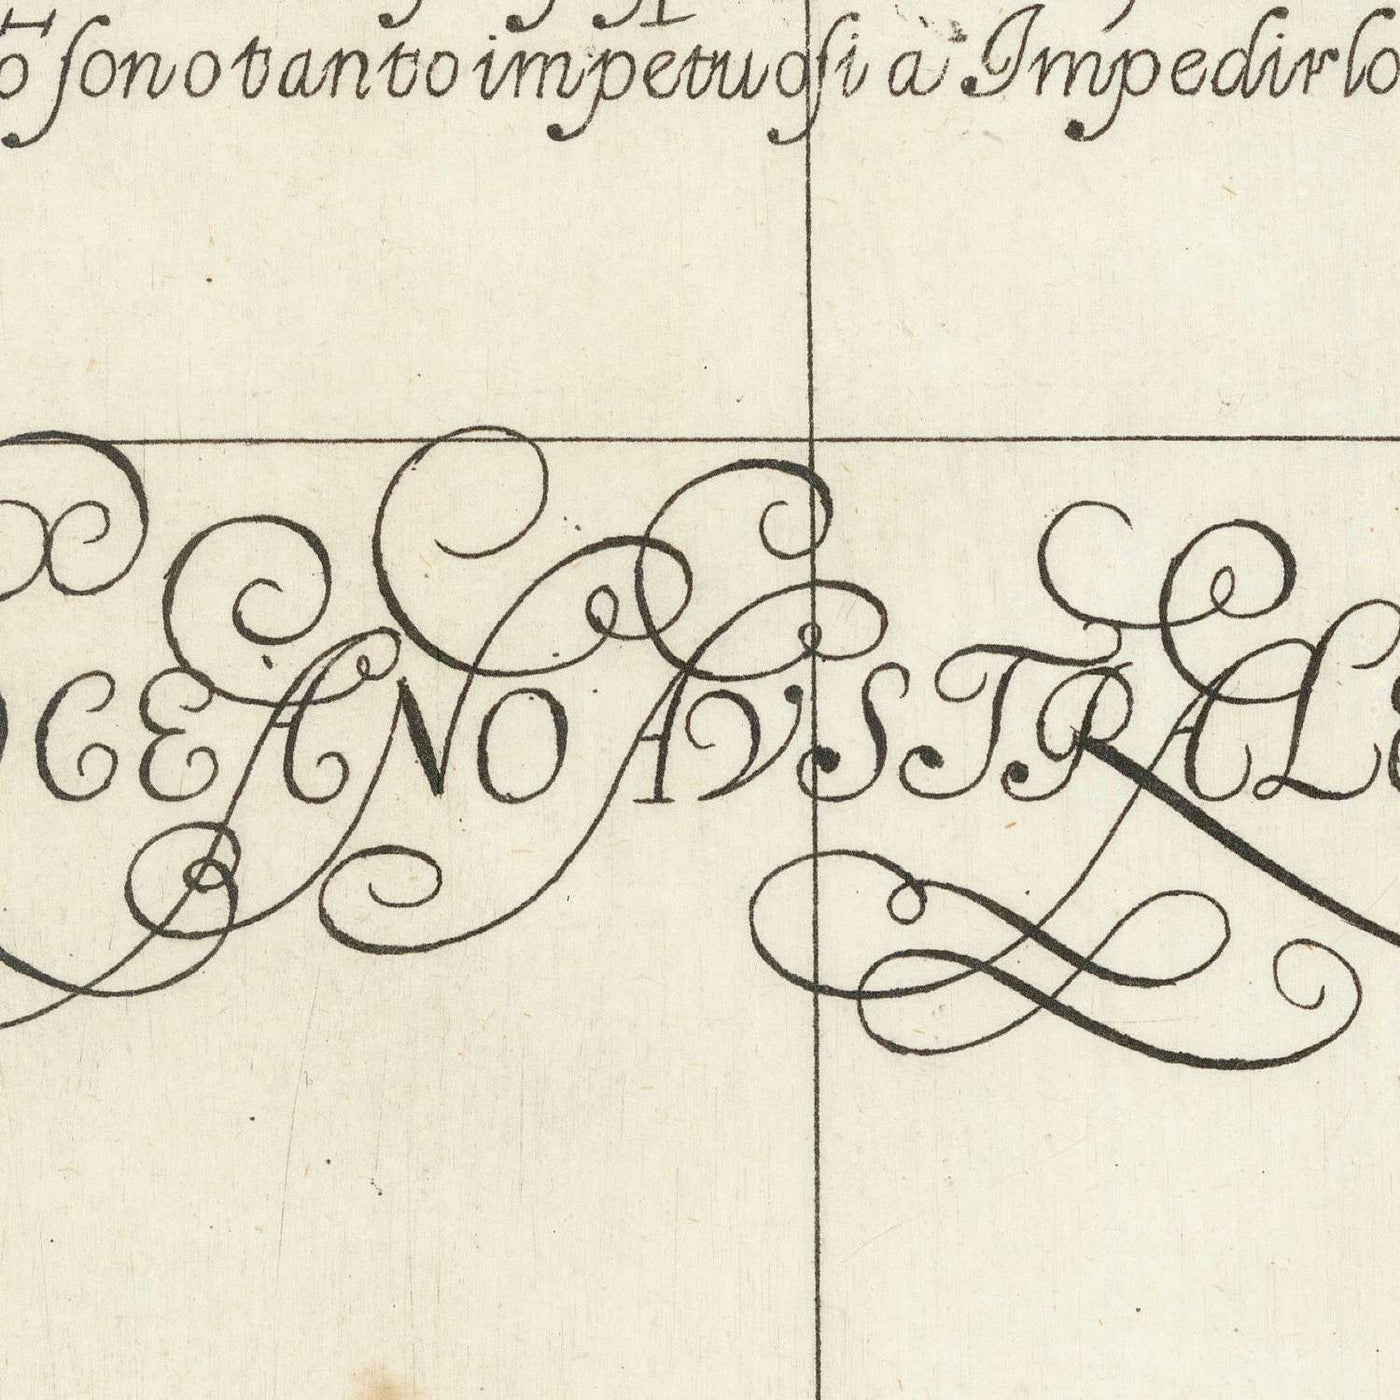 o ſono tanto impetuoſi a Impedirlo
OCEANO AVSTRALE